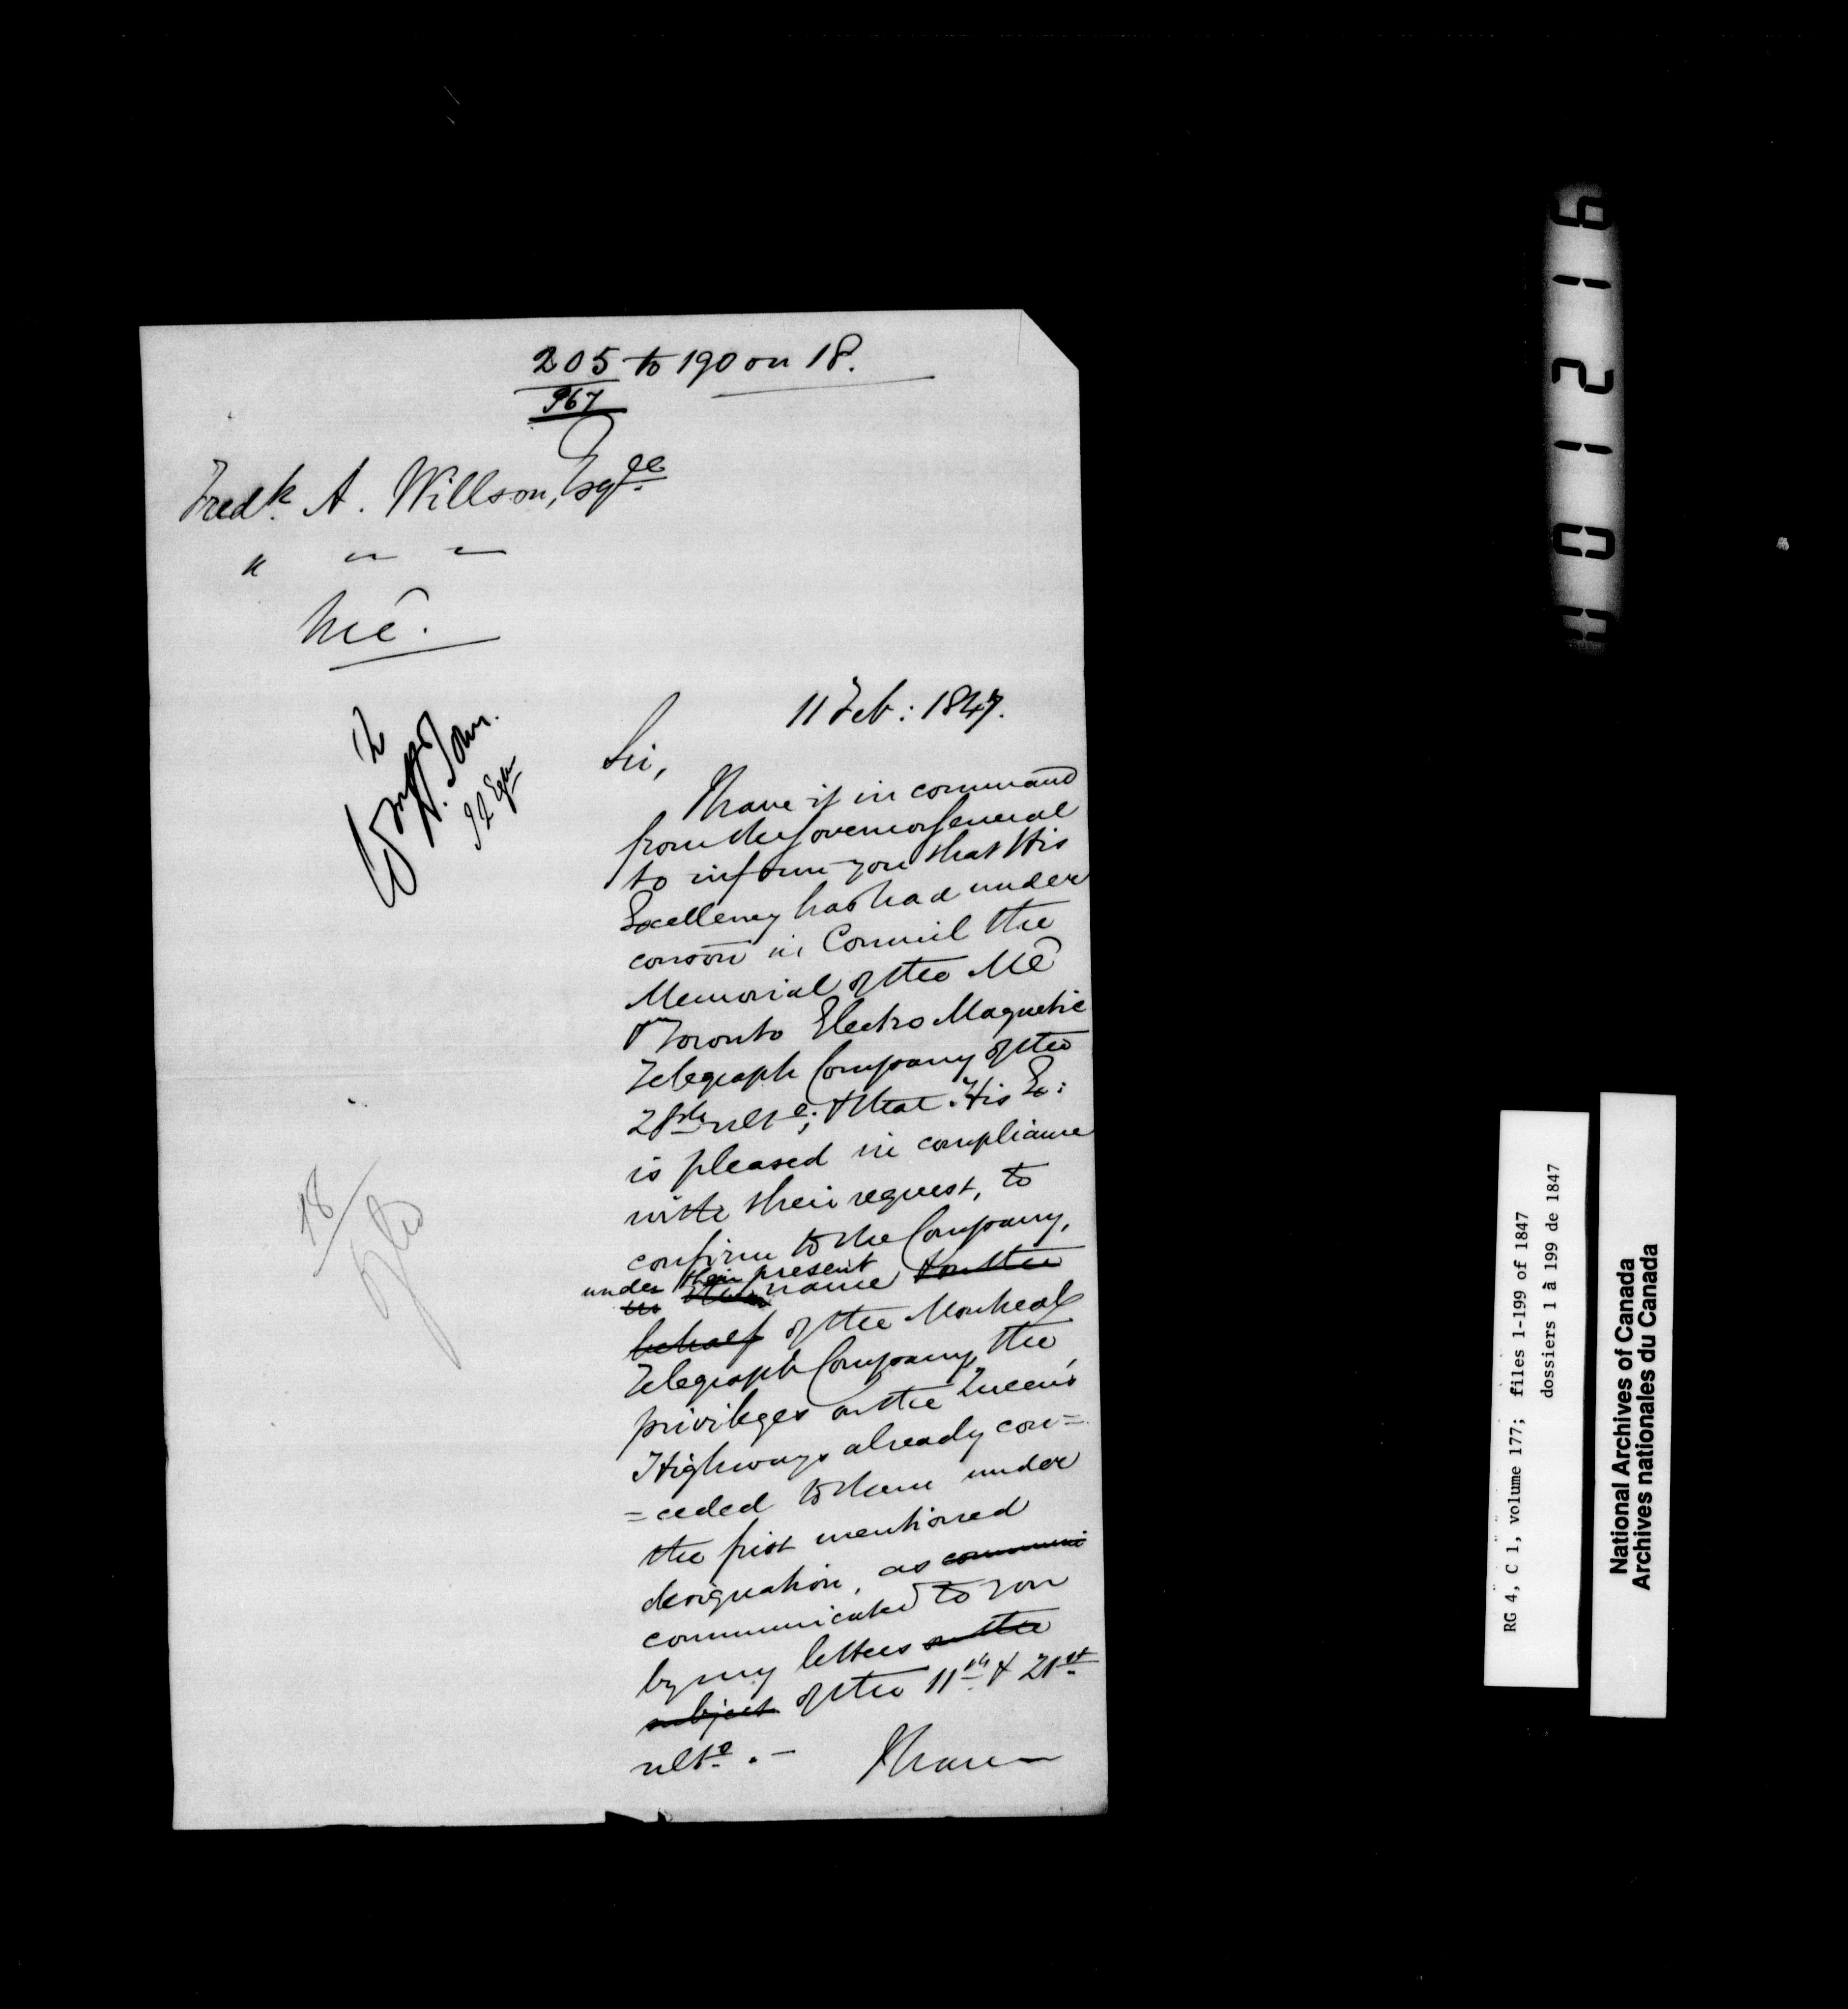 205 to 190 on 18.
967
Fredk. A. Willson, Esqre.
" " "
Mĉ.
11 Feb: 1847.
Sir,
I have it in command
from the Governor General
to inform you that His
Excellency has had under
conson in Council the
Memorial of the Mĉ
& Toronto Electro Magnetic
Telegraph Company of the
28th ulto; & that His Ex:
is pleased in compliance
with their request, to
confirm to the Company,
under their present
in the name & on the
behalf of the Montreal
Telegraph Company, the
privileges on the Queen's
Highways already con=
=ceded to them under
the first mentioned
designation, as communi
communicated to you
by my letters on the
subject of the 11th & 21st
ulto. — I have
18
01216
RG 4, C 1, volume 177; files 1-199 of 1847
dossiers 1 à 199 de 1847
National Archives of Canada
Archives nationales du Canada